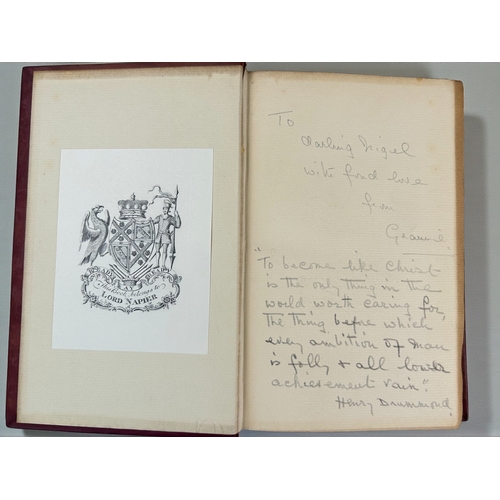 READY AY READY
This Book belongs to
LORD NAPIER
To
darling Nigel
with fond love
from
Grannie.
"To become like Christ
is the only thing in the
world worth caring for,
the thing before which
every ambition of man
is folly & all lower
achievement vain".
Henry Drummond.